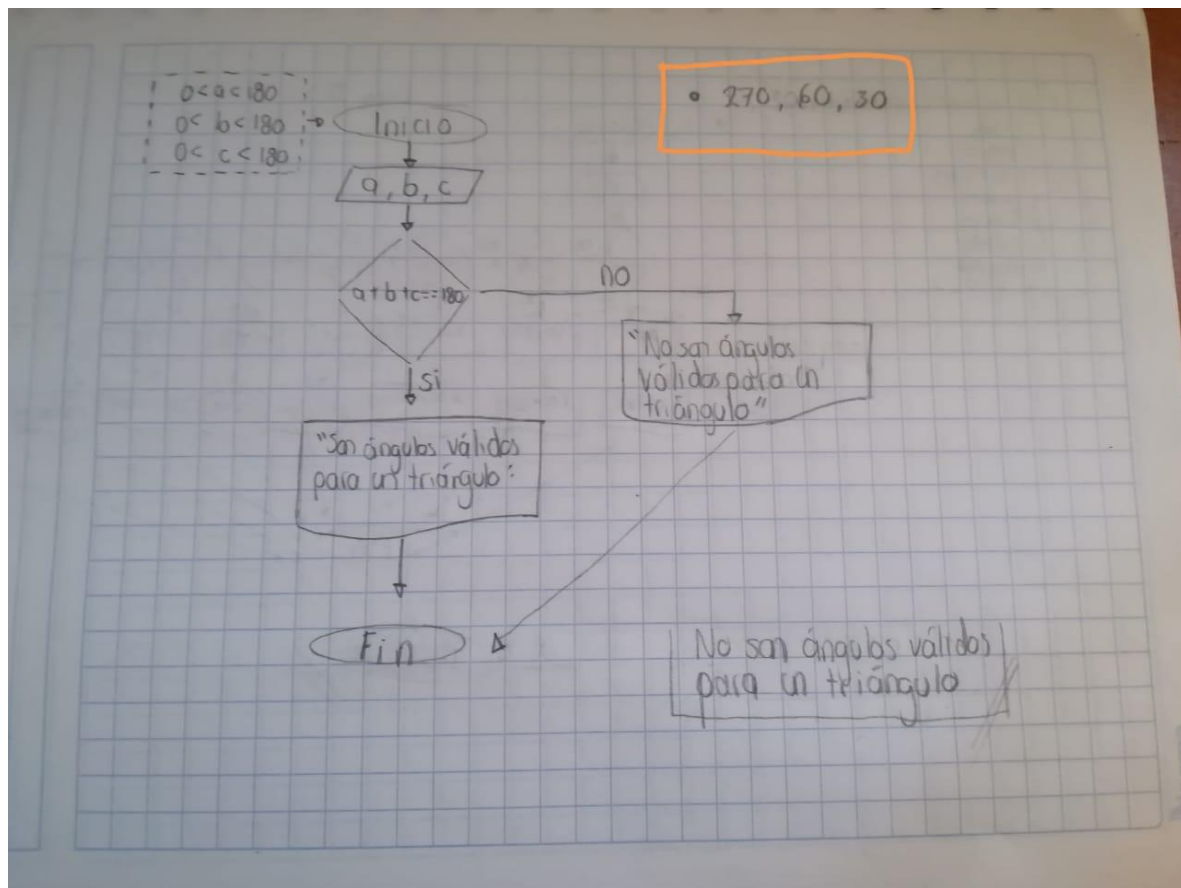 0<a<180
0< b<180
0< c<180
Inicio
• 270, 60, 30
a, b, c
a+b+c==180
no
si
"No son ángulos
válidos para un
triángulo"
"Son ángulos válidos
para un triángulo"
Fin
No son ángulos válidos
para un triángulo